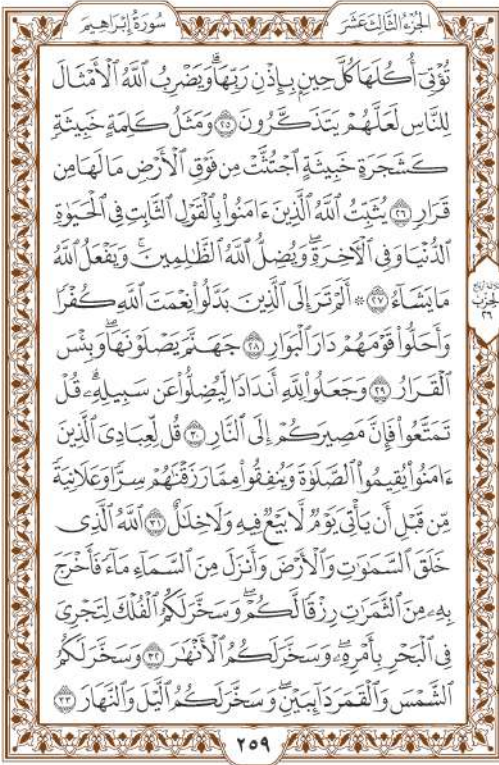 الجزء الثالث عشر
سورة إبراهيم
تُؤْتِىٓ أُكُلَهَا كُلَّ حِينٍۭ بِإِذْنِ رَبِّهَاۗ وَيَضْرِبُ ٱللَّهُ ٱلْأَمْثَالَ
لِلنَّاسِ لَعَلَّهُمْ يَتَذَكَّرُونَ ٢٥ وَمَثَلُ كَلِمَةٍ خَبِيثَةٍ
كَشَجَرَةٍ خَبِيثَةٍ ٱجْتُثَّتْ مِن فَوْقِ ٱلْأَرْضِ مَا لَهَا مِن
قَرَارٍ ٢٦ يُثَبِّتُ ٱللَّهُ ٱلَّذِينَ ءَامَنُوا۟ بِٱلْقَوْلِ ٱلثَّابِتِ فِى ٱلْحَيَوٰةِ
ٱلدُّنْيَا وَفِى ٱلْـَٔاخِرَةِۖ وَيُضِلُّ ٱللَّهُ ٱلظَّـٰلِمِينَۚ وَيَفْعَلُ ٱللَّهُ
مَا يَشَآءُ ٢٧ ۞ أَلَمْ تَرَ إِلَى ٱلَّذِينَ بَدَّلُوا۟ نِعْمَتَ ٱللَّهِ كُفْرًا
وَأَحَلُّوا۟ قَوْمَهُمْ دَارَ ٱلْبَوَارِ ٢٨ جَهَنَّمَ يَصْلَوْنَهَاۖ وَبِئْسَ
ٱلْقَرَارُ ٢٩ وَجَعَلُوا۟ لِلَّهِ أَندَادًا لِّيُضِلُّوا۟ عَن سَبِيلِهِۦۗ قُلْ
تَمَتَّعُوا۟ فَإِنَّ مَصِيرَكُمْ إِلَى ٱلنَّارِ ٣٠ قُل لِّعِبَادِىَ ٱلَّذِينَ
ءَامَنُوا۟ يُقِيمُوا۟ ٱلصَّلَوٰةَ وَيُنفِقُوا۟ مِمَّا رَزَقْنَـٰهُمْ سِرًّا وَعَلَانِيَةً
مِّن قَبْلِ أَن يَأْتِىَ يَوْمٌ لَّا بَيْعٌ فِيهِ وَلَا خِلَـٰلٌ ٣١ ٱللَّهُ ٱلَّذِى
خَلَقَ ٱلسَّمَـٰوَٰتِ وَٱلْأَرْضَ وَأَنزَلَ مِنَ ٱلسَّمَآءِ مَآءً فَأَخْرَجَ
بِهِۦ مِنَ ٱلثَّمَرَٰتِ رِزْقًا لَّكُمْۖ وَسَخَّرَ لَكُمُ ٱلْفُلْكَ لِتَجْرِىَ
فِى ٱلْبَحْرِ بِأَمْرِهِۦۖ وَسَخَّرَ لَكُمُ ٱلْأَنْهَـٰرَ ٣٢ وَسَخَّرَ لَكُمُ
ٱلشَّمْسَ وَٱلْقَمَرَ دَآئِبَيْنِۖ وَسَخَّرَ لَكُمُ ٱلَّيْلَ وَٱلنَّهَارَ ٣٣
الحزب
٢٦
٢٥٩